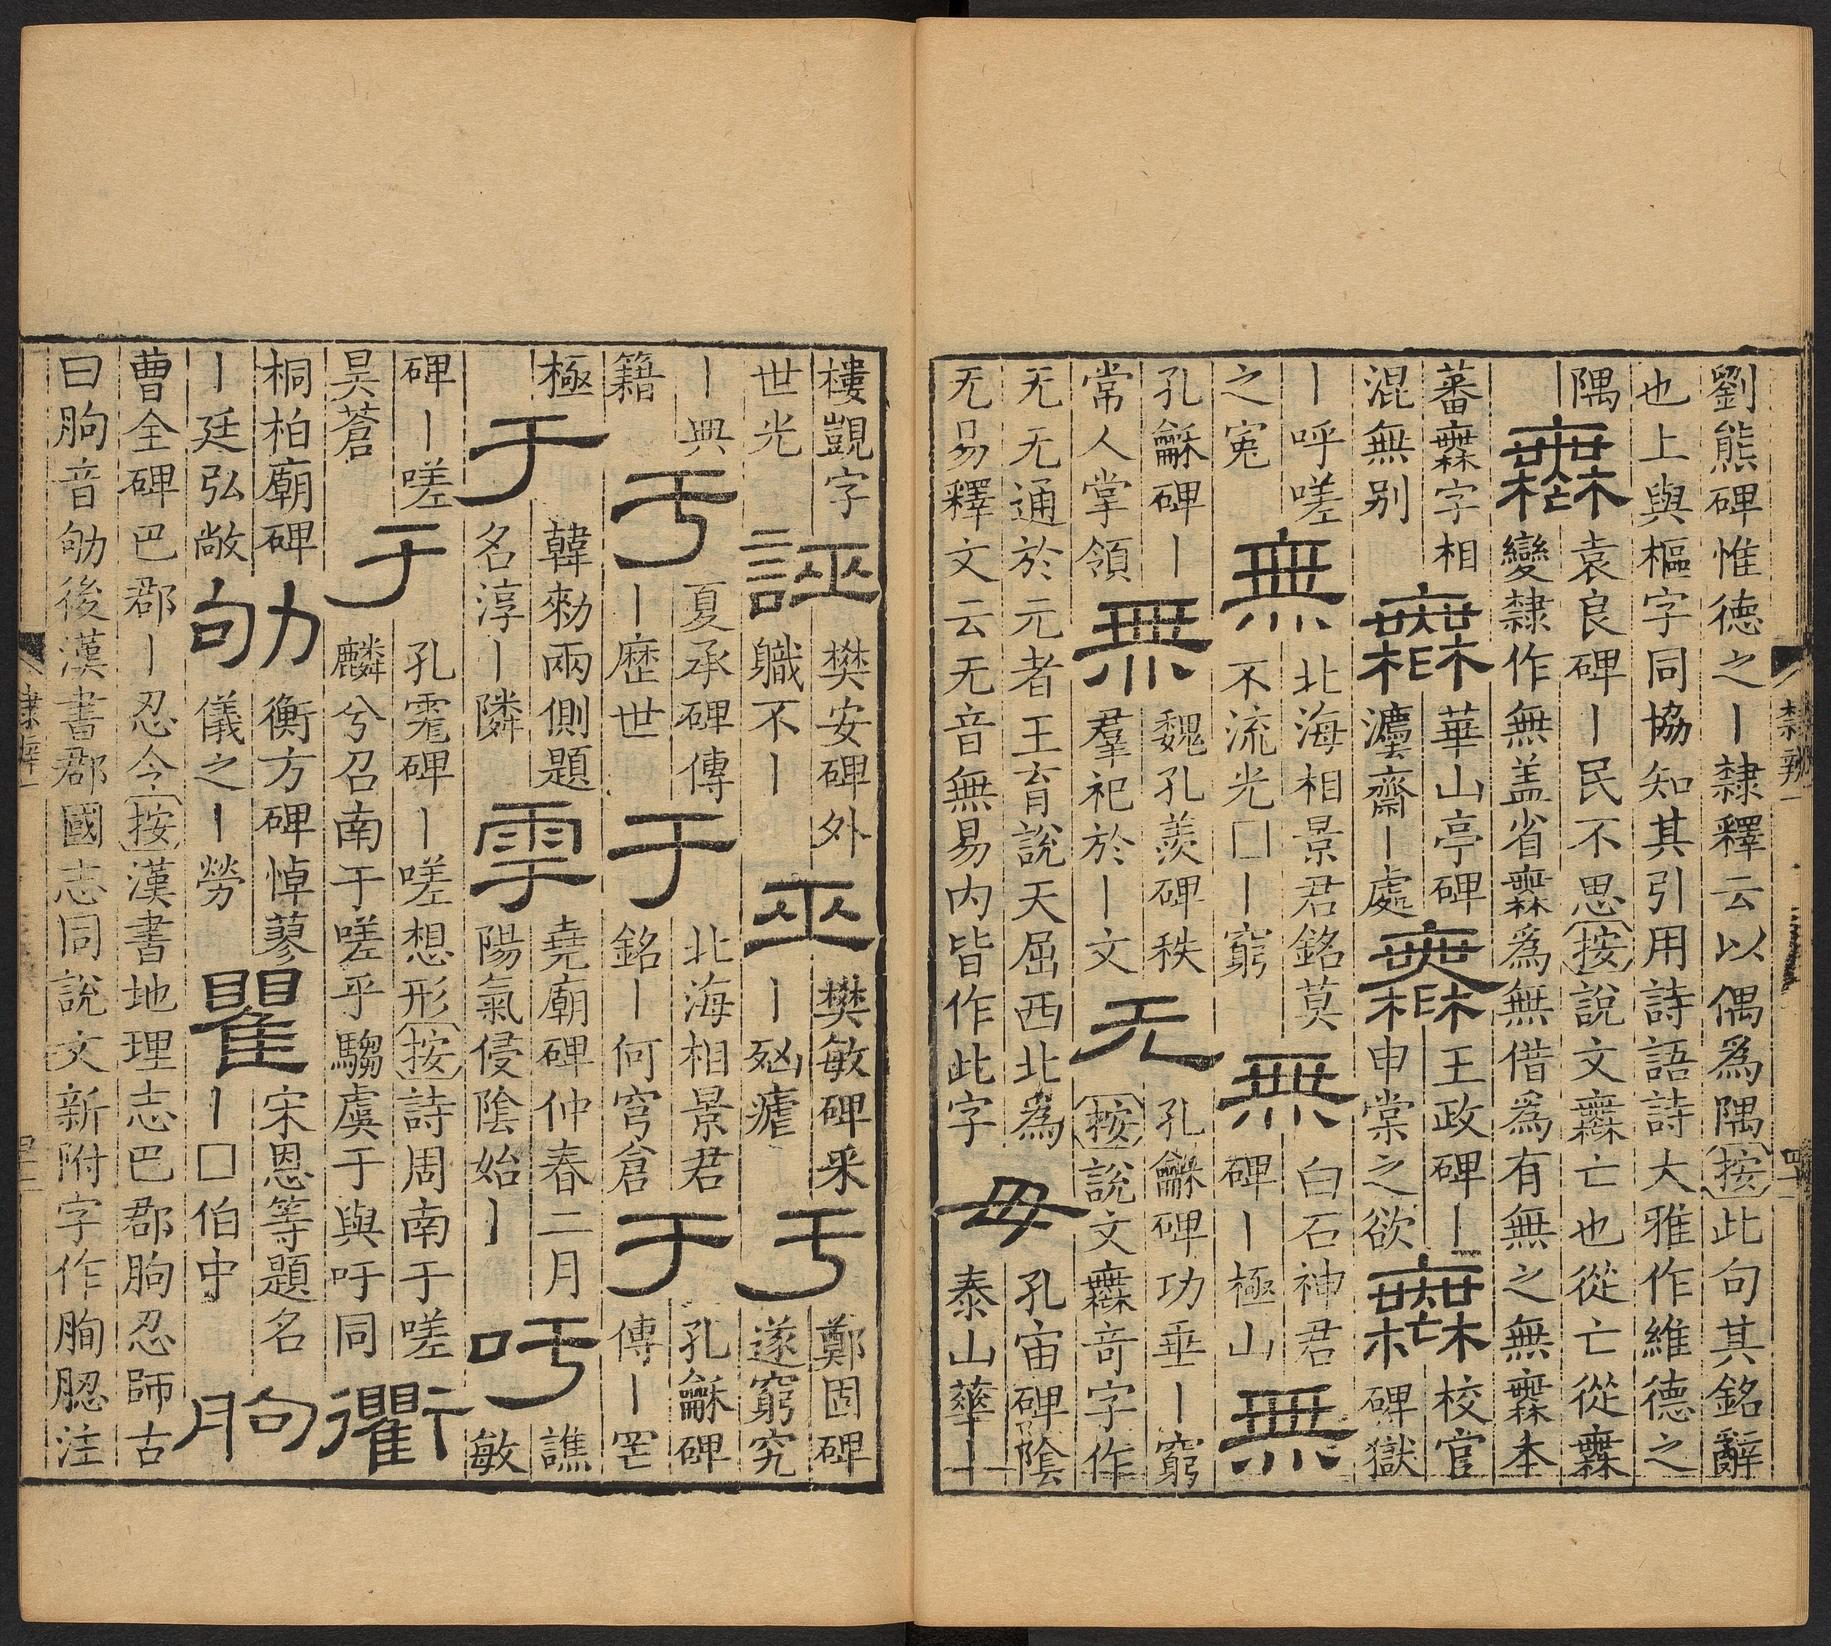 劉熊碑惟德之丨隸釋云以偶爲隅按此句其銘辭
也上與樞字同協知其引用詩語詩大雅作維德之
隅
橆
袁良碑丨民不思按說文橆亡也從亡從橆
變隸作無盖省橆爲無借爲有無之無橆本
蕃橆字相
混無別
橆
華山亭碑
灋齋丨處
橆
王政碑丨
申棠之欲
橆
校官
碑獄
丨呼嗟
之寃
無
北海相景君銘莫
不流光□丨窮
無
白石神君
碑丨極山
無
孔龢碑丨
常人掌領
無
魏孔羨碑秩
羣祀於丨文
无
孔龢碑功垂丨窮
按說文橆奇字作
无无通於元者王育說天屈西北爲
无易釋文云无音無易内皆作此字
毋
孔宙碑陰
泰山華丨
隸辨一
四十一
樓覬字
世光
誣
樊安碑外
職不丨
巫
樊敏碑釆
丨㓙瘧
亏
鄭固碑
遂窮究
丨典
籍
亏
夏承碑傳
丨歴世
于
北海相景君
銘丨何穹倉
于
孔龢碑
傳丨罔
極
于
韓勑兩側題
名淳丨隣
雩
堯廟碑仲春二月
陽氣侵陰始丨
吁
譙
敏
碑丨嗟
昊蒼
于
孔霓碑丨嗟想形按詩周南于嗟
麟兮召南于嗟乎騶虞于與吁同
衢
桐柏廟碑
丨廷弘敞
劬
衡方碑悼蓼
儀之丨勞
瞿
宋恩等題名
丨□伯中
朐
曹全碑巴郡丨忍令按漢書地理志巴郡朐忍師古
曰朐音劬後漢書郡國志同說文新附字作胊䏰注